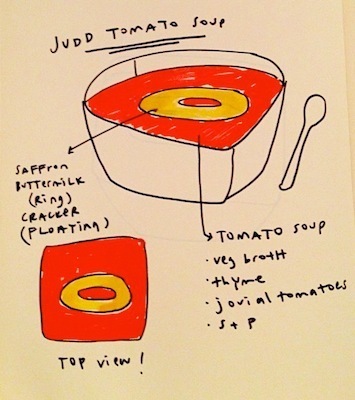 JUDD TOMATO SOUP
SAFFRON
BUTTERMILK
(Ring)
CRACKER
(FLOATING)
TOMATO SOUP
• veg broth
• thyme
• jovial tomatoes
• S + P
TOP VIEW!